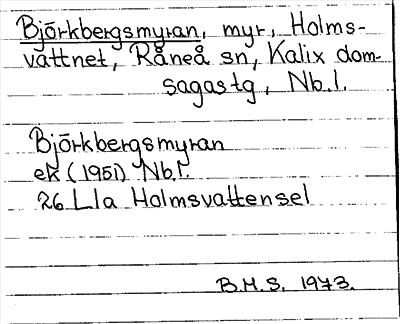 Björkbergsmyran, myr, Holms-
vattnet, Råneå sn, Kalix dom-
sagas tg, Nb.l.
Björkbergsmyran
ek (1951) Nb.l.
26 L1a Holmsvattensel
B.M.S. 1973.